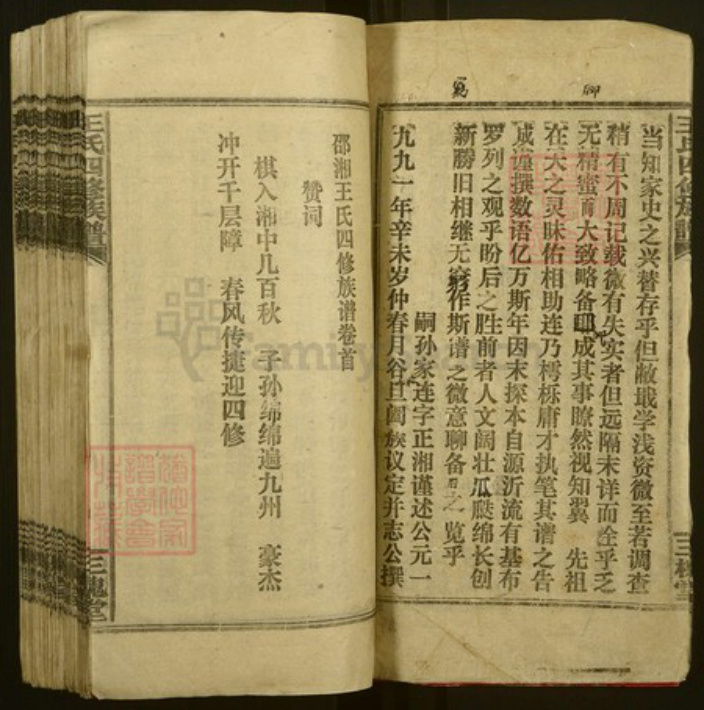 当知家史之兴替存乎但敝戢学浅资微至若调查
稍有不周记载微有失实者但远隔未详而全乎乏
无精蜜而大致略备 成其事瞭然视知翼 先祖
在天之灵昧佑相助连乃樗栎庸才执笔其谱之告
成谨撰数语亿万斯年因末探本自源沂流有基布
罗列之观乎盼后之胜前者人文阔壮瓜瓞绵长创
新勝旧相继无穷作斯谱之微意聊备 之览乎
嗣孙家连字正湘谨述公元一
九九一年辛未岁仲春月谷旦阖族议定并志公撰
王氏四修族譜
三槐堂
邵湘王氏四修族谱卷首
赞词
棋入湘中几百秋 子孙绵绵遍九州 豪杰
冲开千层障 春风传捷迎四修
王氏四修族譜
三槐堂